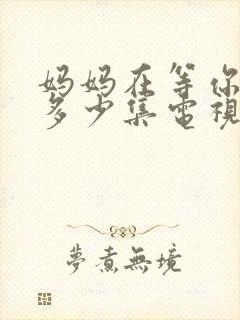 妈妈在等你
多少集電視
夢煮無境